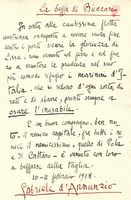 La beffa di Buccari
In onta alla cautissima flotta
austriaca occupata a covare senza fine
dentro i porti sicuri la gloriuzza di
Lissa, sono venuti col ferro e col fuo-
co a scuotere la prudenza nel suo
più comodo rifugio i marinai d'I-
talia, che si ridono d'ogni sorta di
reti e di sbarre, pronti sempre a
osare l'inosabile.
E un buon compagno, ben no-
to, il nemico capitale, fra tutti i ne-
mici il nemicissimo, quello di Pola
e di Cattaro è venuto con loro
a beffarsi della taglia.
10-11 febbraio 1918.
Gabriele d'Annunzio